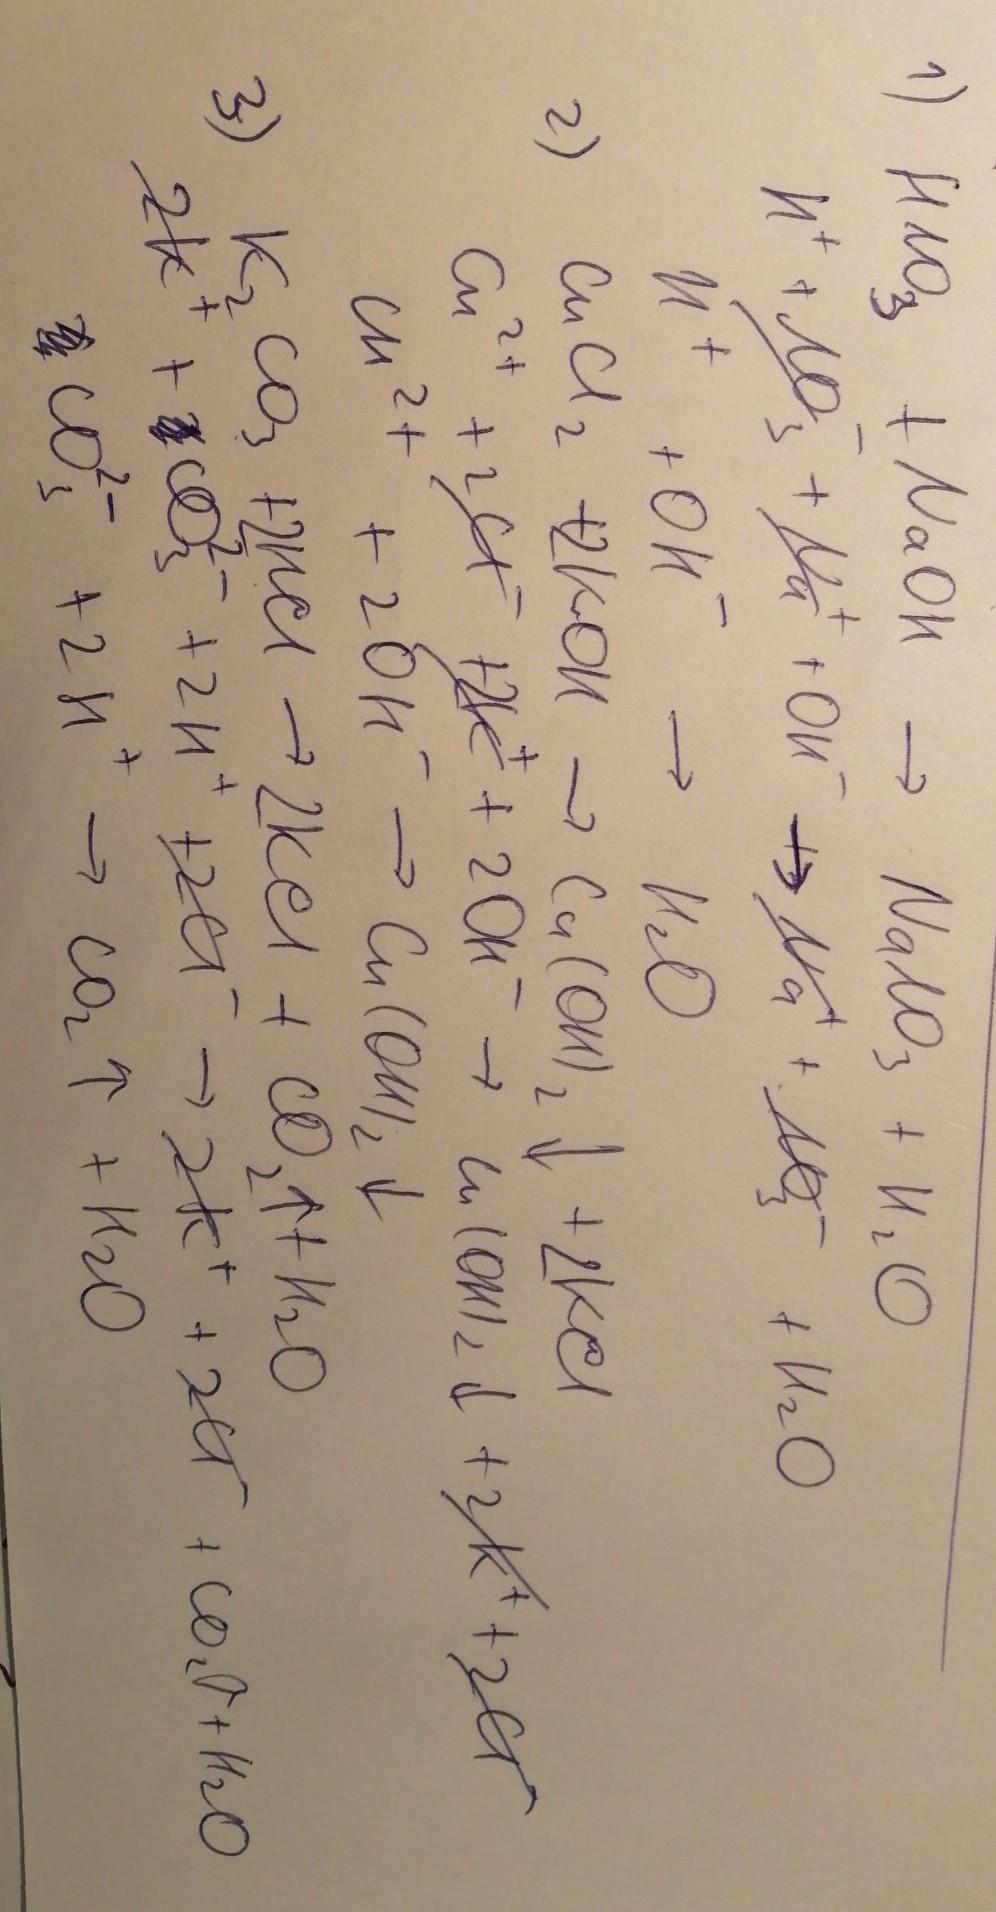 1) HNO₃ + NaOH → NaNO₃ + H₂O
H⁺ + NO₃⁻ + Na⁺ + OH⁻ → Na⁺ + NO₃⁻ + H₂O
H⁺ + OH⁻ → H₂O
2) CuCl₂ + 2KOH → Cu(OH)₂ ↓ + 2KCl
Cu²⁺ + 2Cl⁻ + 2K⁺ + 2OH⁻ → Cu(OH)₂ ↓ + 2K⁺ + 2Cl⁻
Cu²⁺ + 2OH⁻ → Cu(OH)₂ ↓
3) K₂CO₃ + 2HCl → 2KCl + CO₂↑ + H₂O
2K⁺ + CO₃²⁻ + 2H⁺ + 2Cl⁻ → 2K⁺ + 2Cl⁻ + CO₂↑ + H₂O
CO₃²⁻ + 2H⁺ → CO₂ ↑ + H₂O